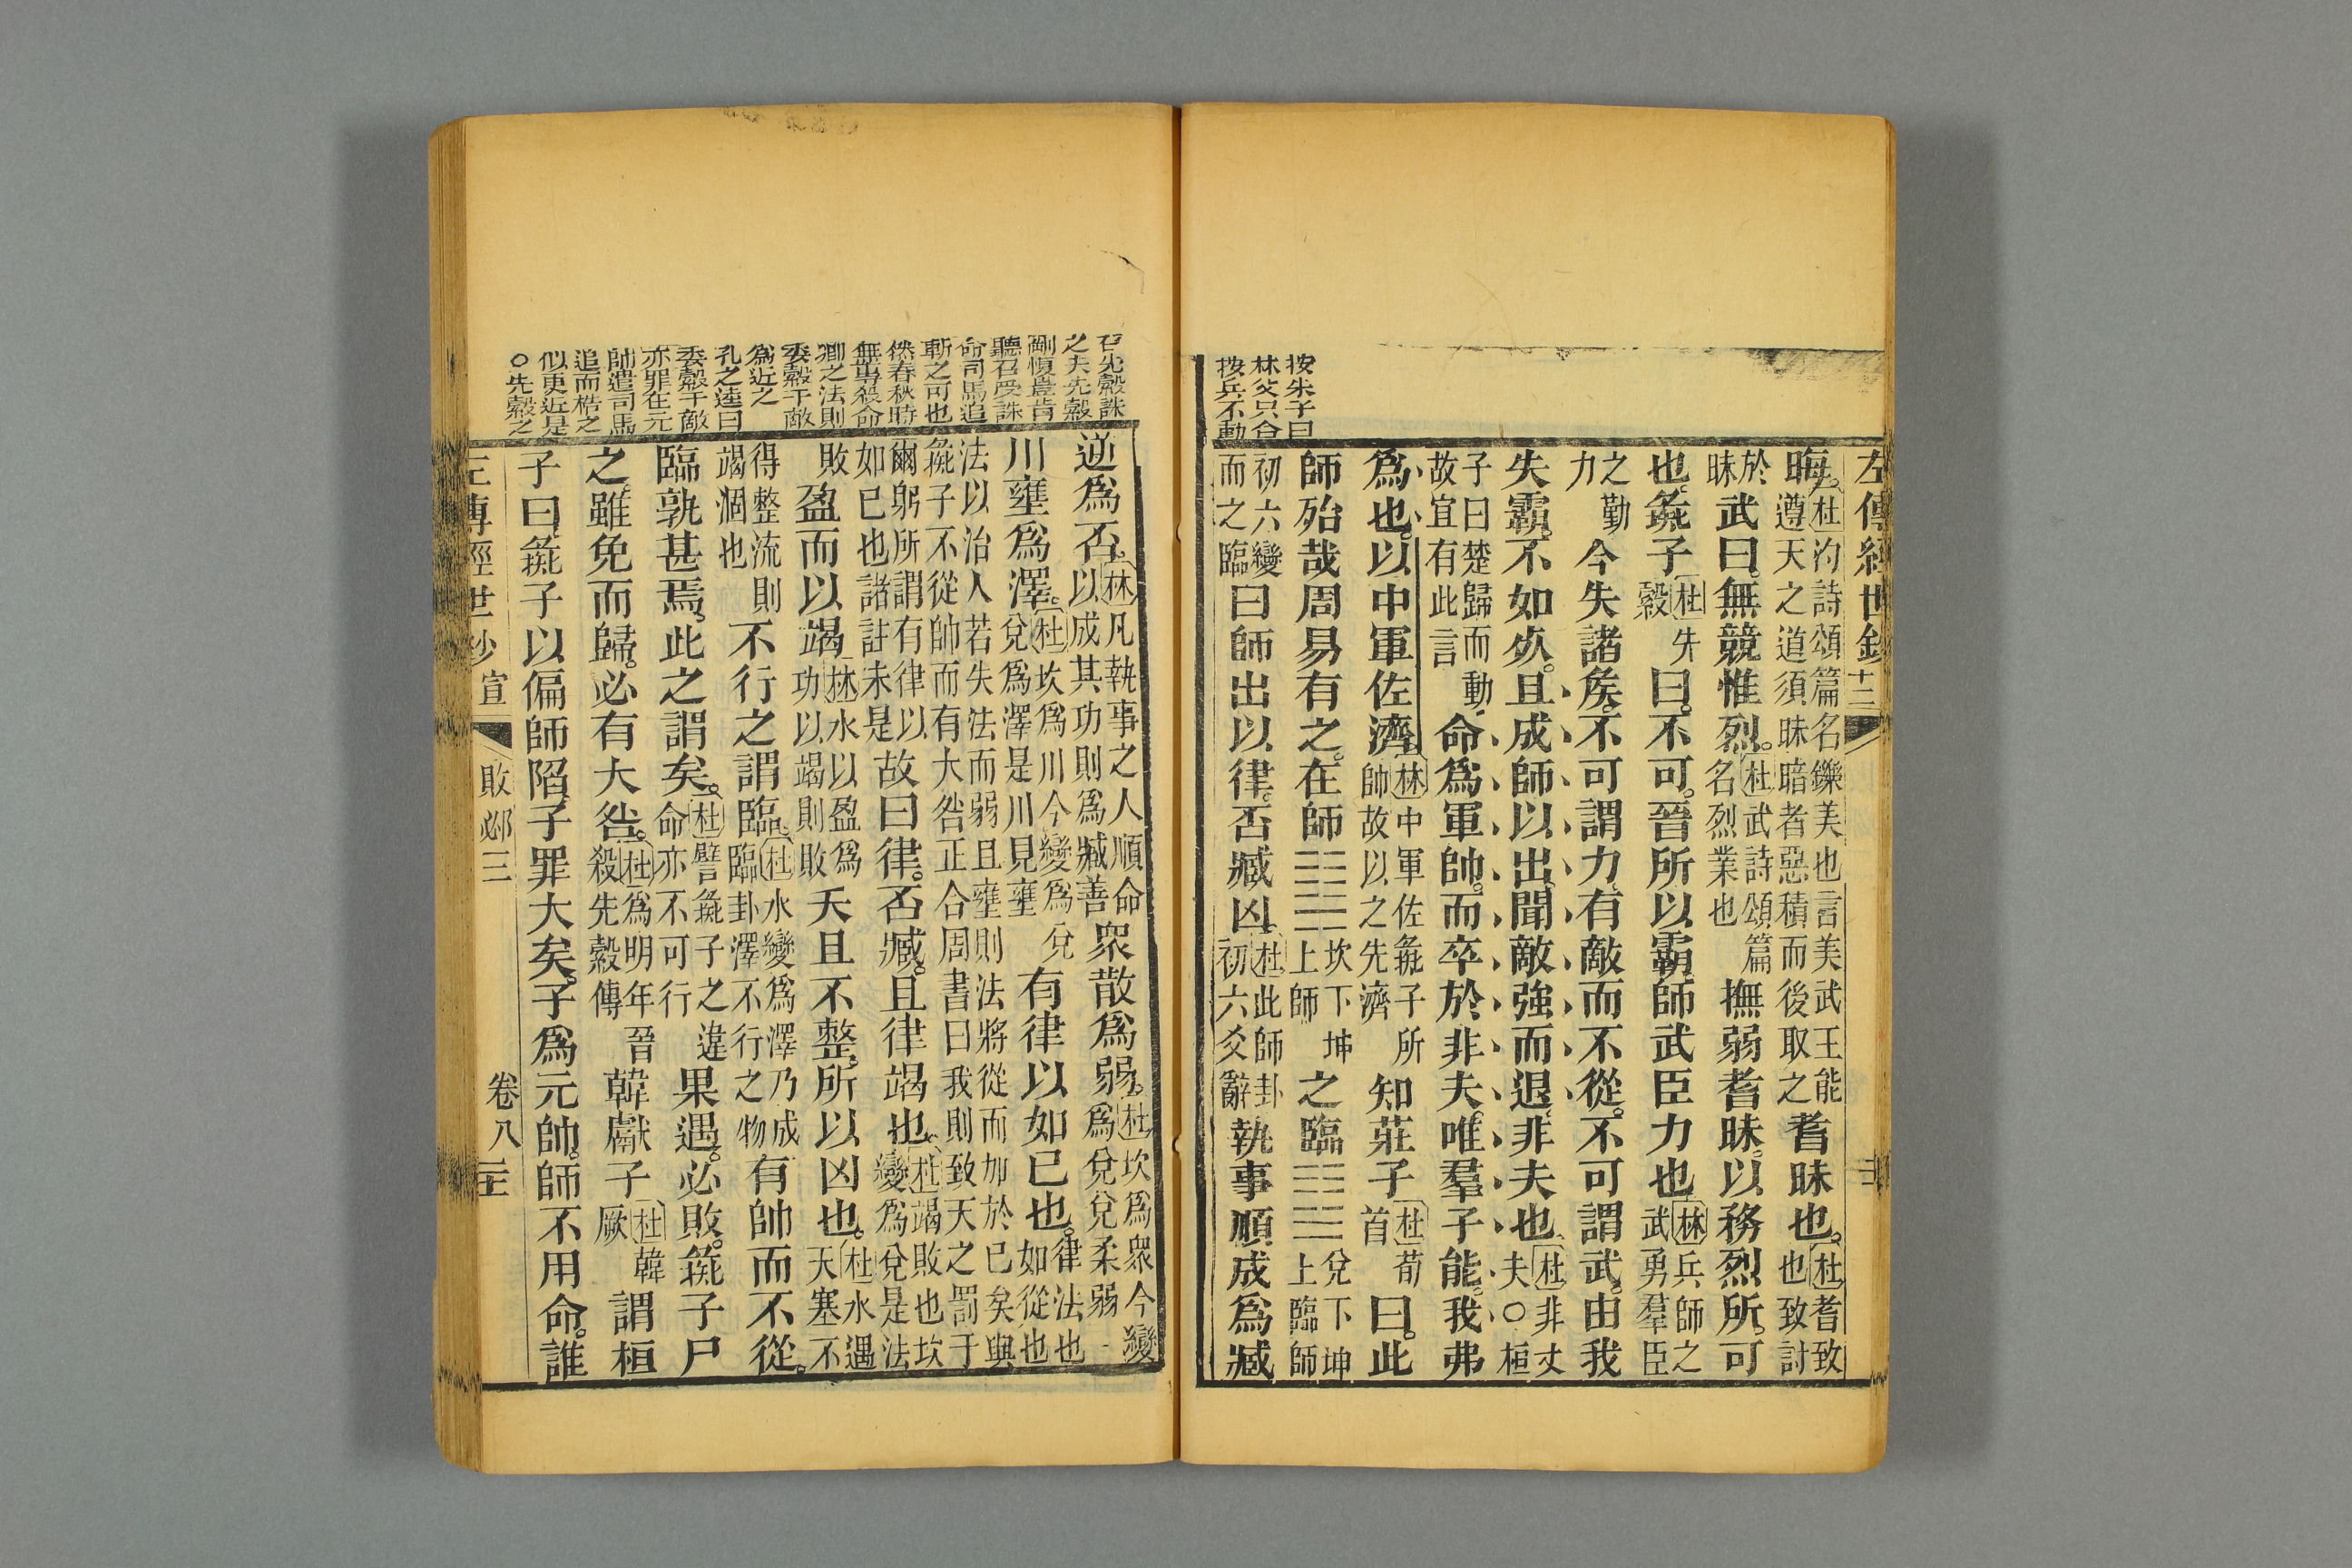 左傳經世鈔 十三
晦。杜汋詩頌篇名鑠美也言美武王能遵天之道須昧暗者惡積而後取之耆昧也。杜耆致也致討
於昧武曰。無競惟烈。杜武詩頌篇名烈業也撫弱耆昧。以務烈所。可
也。彘子杜先縠曰。不可。晉所以霸。師武臣力也林兵師之武勇羣臣
之勤力今失諸矦。不可謂力。有敵而不從。不可謂武。由我
失霸。不如死。且成師以出。聞敵強而退。非夫也杜非丈夫○桓
子曰楚歸而動故宜有此言命爲軍帥。而卒於非夫。唯羣子能。我弗
爲也。以中軍佐濟。林中軍佐彘子所帥故以之先濟知莊子杜荀首曰。此
師殆哉周易有之。在師䷆坎下坤上師之臨䷒兌下坤上臨師
初六變而之臨曰師出以律。否臧凶杜此師卦初六爻辭執事順成爲臧
按朱子曰
林父只合
按兵不動
召先縠誅
之夫先縠
剛愎豈肯
聽召受誅
命司馬追
斬之可也
然春秋時
無專殺命
卿之法則
委縠于敵
爲近之
孔之逵曰
委縠于敵
亦罪在元
帥遣司馬
追而梏之
似更近是
○先縠之
逆爲否。林凡執事之人順命以成其功則爲臧善衆散爲弱。杜坎爲衆今變爲兌兌柔弱
川壅爲澤。杜坎爲川今變爲兌兌爲澤是川見壅有律以如已也。律法也如從也
法以治人若失法而弱且壅則法將從而加於已矣與彘子不從帥而有大咎正合周書曰我則致天之罰于
爾躬所謂有律以如已也諸註未是故曰律。否臧。且律竭也。杜竭敗也坎變爲兌是法
敗盈而以竭林水以盈爲功以竭則敗夭且不整。所以凶也。杜水遇夭塞不
得整流則竭涸也不行之謂臨。杜水變爲澤乃成臨卦澤不行之物有帥而不從。
臨孰甚焉。此之謂矣。杜譬彘子之違命亦不可行果遇。必敗。彘子尸
之。雖免而歸。必有大咎。杜爲明年晉殺先縠傳韓獻子杜韓厥謂桓
子曰。彘子以偏師陷。子罪大矣。子爲元帥。師不用命。誰
左傳經世鈔 宣 敗邲三 卷八